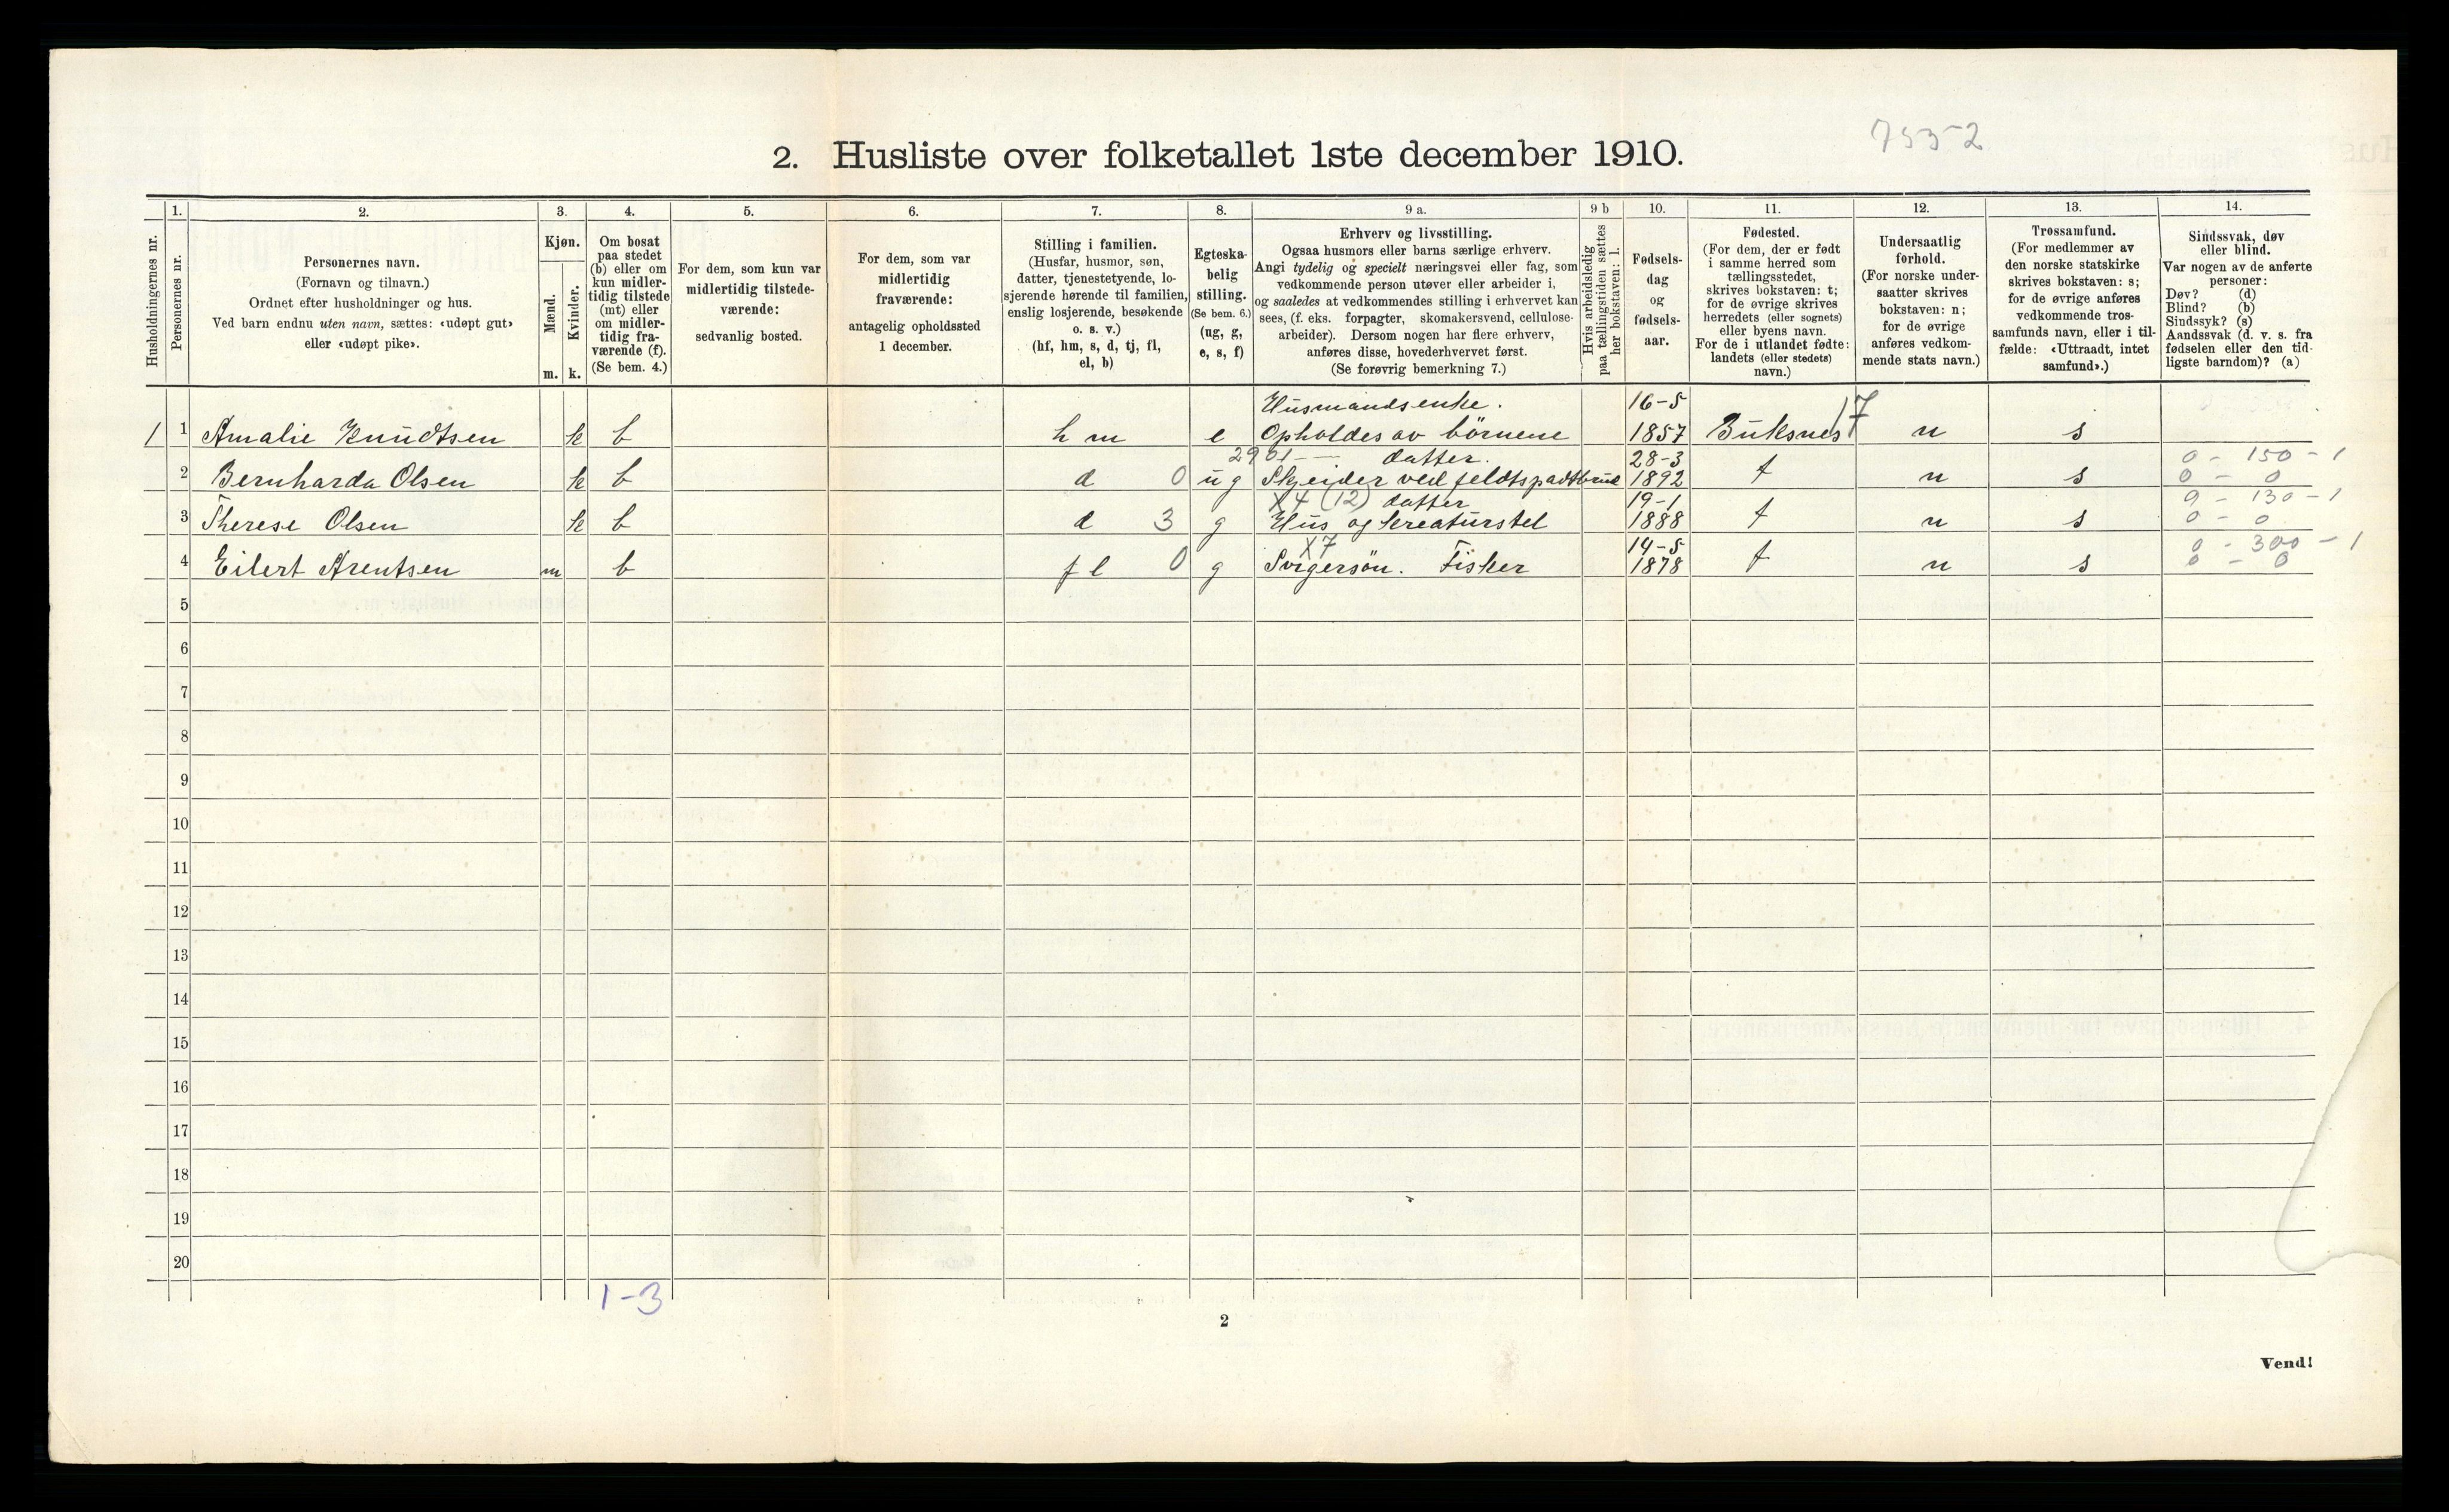 753-2
2. Husliste over folketallet 1ste december 1910.
Husholdningernes nr.
1.
Personernes nr.
2.
Personernes navn.
(Fornavn og tilnavn.)
Ordnet efter husholdninger og hus.
Ved barn endnu uten navn, sættes: «udøpt gut»
eller «udøpt pike».
3.
Kjøn.
Mænd.
Kvinder.
m. k.
4.
Om bosat
paa stedet
(b) eller om
kun midler-
tidig tilstede
(mt) eller
om midler-
tidig fra-
værende (f).
(Se bem. 4.)
5.
For dem, som kun var
midlertidig tilstede-
værende:
sedvanlig bosted.
6.
For dem, som var
midlertidig
fraværende:
antagelig opholdssted
1 december.
7.
Stilling i familien.
(Husfar, husmor, søn,
datter, tjenestetyende, lo-
sjerende hørende til familien,
enslig losjerende, besøkende
o. s. v.)
(hf, hm, s, d, tj, fl,
el, b)
8.
Egteska-
belig
stilling.
(Se bem. 6.)
(ug, g,
e, s, f)
9 a.
Erhverv og livsstilling.
Ogsaa husmors eller barns særlige erhverv.
Angi tydelig og specielt næringsvei eller fag, som
vedkommende person utøver eller arbeider i,
og saaledes at vedkommendes stilling i erhvervet kan
sees, (f. eks. forpagter, skomakersvend, cellulose-
arbeider). Dersom nogen har flere erhverv,
anføres disse, hovederhvervet først.
(Se forøvrig bemerkning 7.)
9 b
Hvis arbeidsledig
paa tællingstiden sættes
her bokstaven: l.
10.
Fødsels-
dag
og
fødsels-
aar.
11.
Fødested.
(For dem, der er født
i samme herred som
tællingsstedet,
skrives bokstaven: t;
for de øvrige skrives
herredets (eller sognets)
eller byens navn.
For de i utlandet fødte:
landets (eller stedets)
navn.)
12.
Undersaatlig
forhold.
(For norske under-
saatter skrives
bokstaven: n;
for de øvrige
anføres vedkom-
mende stats navn.)
13.
Trossamfund.
(For medlemmer av
den norske statskirke
skrives bokstaven: s;
for de øvrige anføres
vedkommende tros-
samfunds navn, eller i til-
fælde: «Uttraadt, intet
samfund».)
14.
Sindssvak, døv
eller blind.
Var nogen av de anførte
personer:
Døv? (d)
Blind? (b)
Sindssyk? (s)
Aandssvak (d. v. s. fra
fødselen eller den tid-
ligste barndom)? (a)
Husmandsenke. 16-5 17
1 1 Amalie Knudtsen k b hm e Opholdes av börnene 1857 Buksnes n s
2901 — datter. 28-3 0 - 150 - 1
2 Bernharda Olsen k b d 0 ug Skjeider ved feldtspadtbrud 1892 t n s 0 - 0
X4 (12) datter 19-1 0 - 130 - 1
3 Therese Olsen k b d 3 g Hus og kreaturstel 1888 t n s 0 - 0
X7 14-5 0 - 300 - 1
4 Eilert Arentsen m b fl 0 g Svigersön. Fisker 1878 t n s 0 - 0
5
6
7
8
9
10
11
12
13
14
15
16
17
18
19
20
1-3
2
Vend!